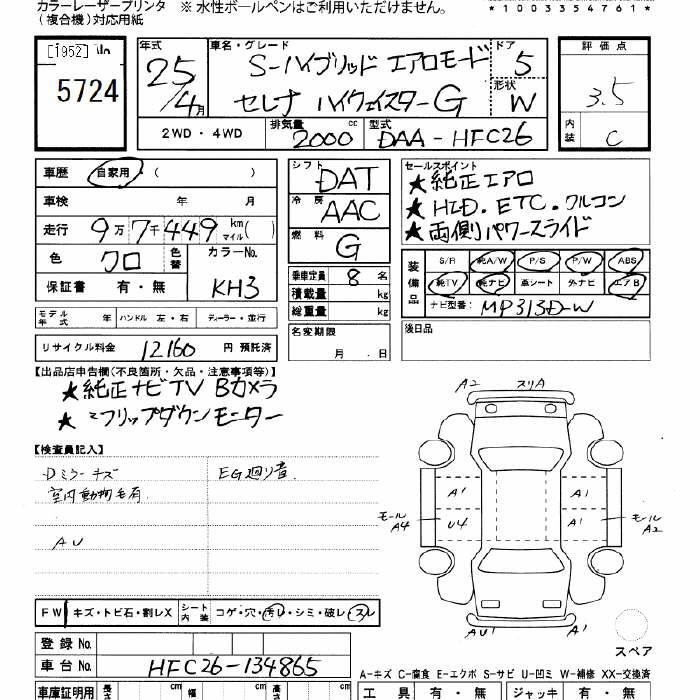 カラーレーザープリンタ ※ 水性ボールペンはご利用いただけません。
(複合機)対応用紙
*1003354761*
[1952] No
5724
年式 車名・グレード ドア 評価点
25/4月 S-ハイブリッド エアロモード 5
セレナ ハイウェイスターG 形状 W
3.5
2WD・4WD 排気量 2000 cc 型式 DAA-HFC26
内装 C
車歴 自家用 ( )
車検 年 月
走行 9万7千449 km マイル ( )
色 クロ 色替 カラーNo. KH3
保証書 有・無
モデル年式 年 ハンドル 左・右 ディーラー・並行
リサイクル料金 12160 円 預託済
シフト DAT
冷房 AAC
燃料 G
乗車定員 8 名
積載量 kg
総重量 kg
名変期限 月 日
セールスポイント
★純正エアロ
★HID.ETC.クルコン
★両側パワースライド
装備品 S/R 純A/W P/S P/W ABS
純TV 純ナビ 革シート 外ナビ エアB
ナビ型番: MP313D-W
後日品
【出品店申告欄(不良箇所・欠品・注意事項等)】
★純正ナビTV Bカメラ
★フリップダウンモーター
【検査員記入】
Dミラーキズ EG廻り音
室内動物毛有
AU
A2 スリA
A1 A1
モールA4 U4 A1 モールA2
AU1 A1
スペア
FW キズ・トビ石・割レX シート内装 コゲ・穴・汚レ・シミ・破レ・スレ
登録 No.
車台 No. HFC26-134865
A-キズ C-腐食 E-エクボ S-サビ U-凹ミ W-補修 XX-交換済
車庫証明用 長さ cm 幅 cm 高さ cm
工具 有・無 ジャッキ 有・無